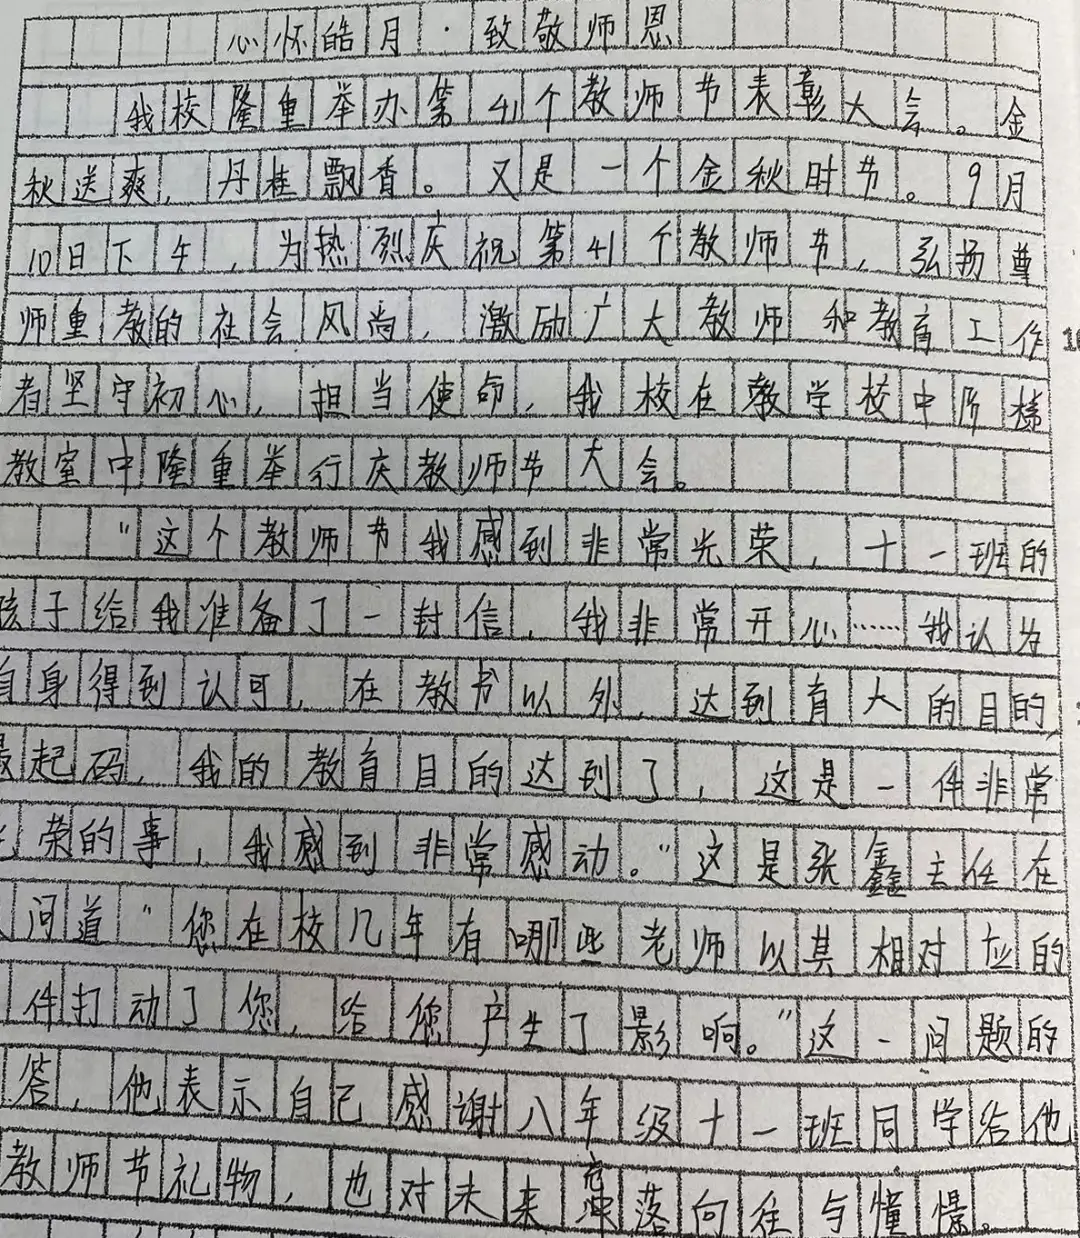 心怀皓月·致敬师恩
我校隆重举办第41个教师节表彰大会。金
秋送爽，丹桂飘香。又是一个金秋时节。9月
10日下午，为热烈庆祝第41个教师节，弘扬尊
师重教的社会风尚，激励广大教师和教育工作
者坚守初心，担当使命，我校在教学校中阶梯
教室中隆重举行庆教师节大会。
“这个教师节我感到非常光荣，十一班的
孩子给我准备了一封信，我非常开心……我认为
自身得到认可，在教书以外，达到育人的目的，
最起码，我的教育目的达到了，这是一件非常
光荣的事，我感到非常感动。”这是张鑫主任在
问道“您在校几年有哪些老师以其相对应的
件打动了您，给您产生了影响。”这一问题的
答，他表示自己感谢八年级十一班同学给他
教师节礼物，也对未来落向往与憧憬。